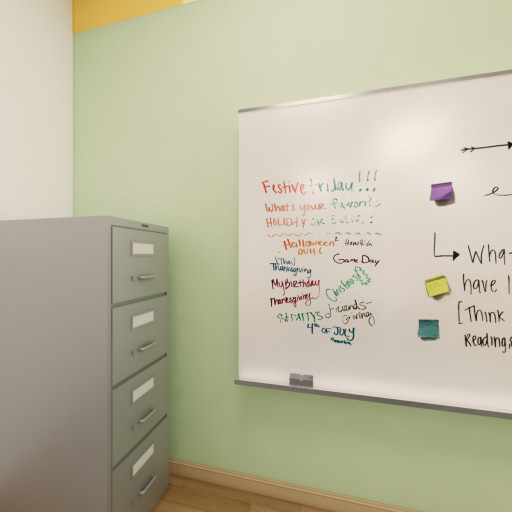 Festive Friday!!!
What's your favorite
HOLIDAY OR EVENT?
Halloween
Game Day
(Thai)
Thanksgiving
Christmas
My Birthday
Thanksgiving
Friends-
Giving
ST PATTYS
4th OF JULY
Wha
have I
[Think
Readings